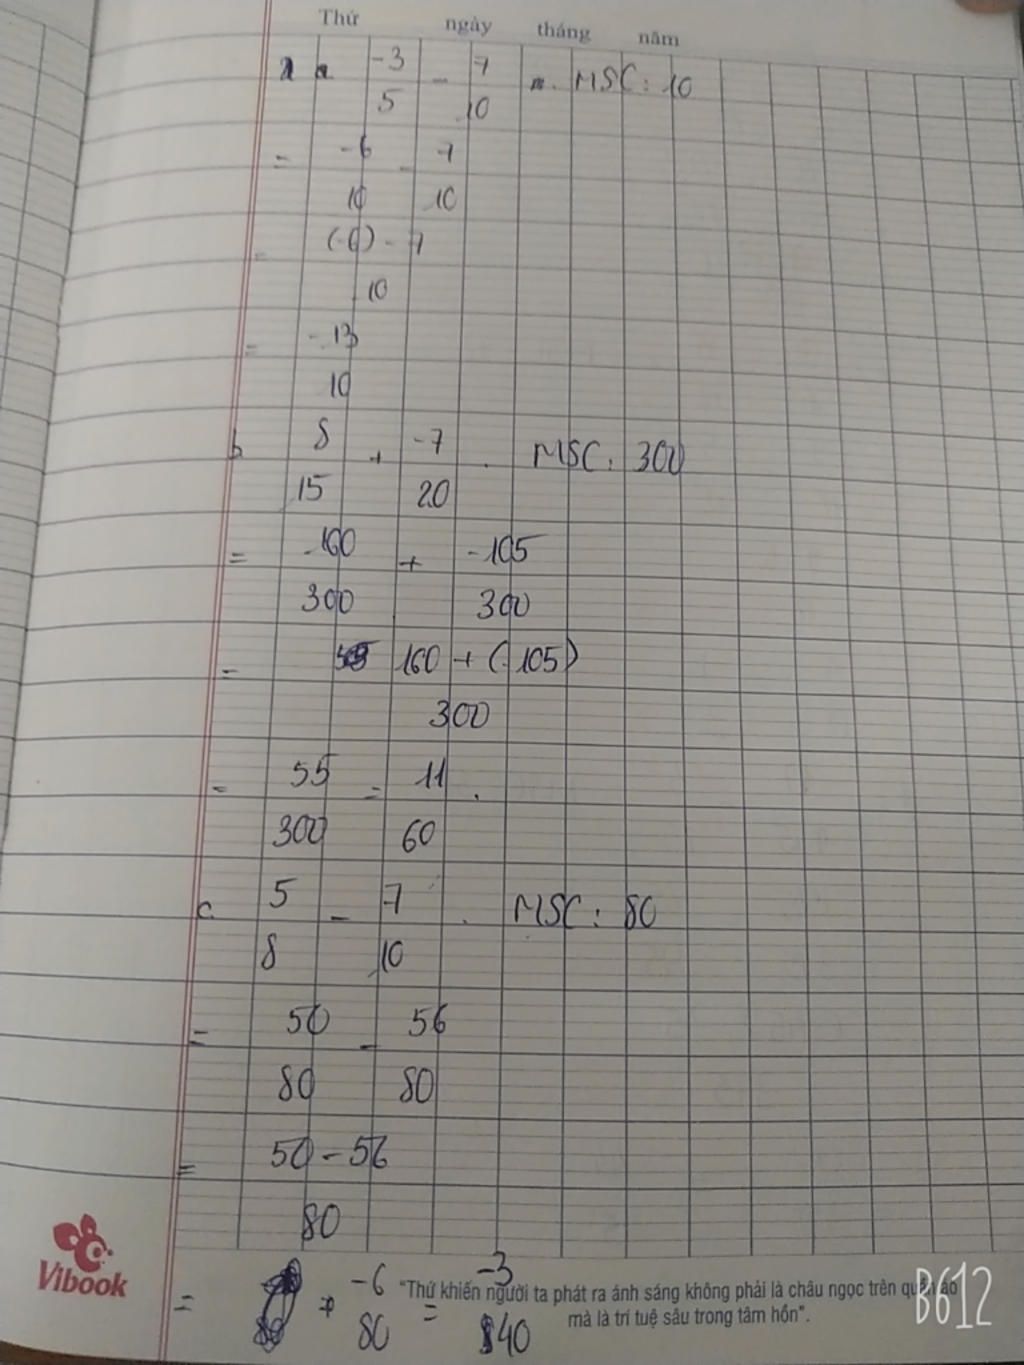 Thứ ngày tháng năm
-3 - 7 MSC: 10
5 10
= -6 - 7
10 10
= (-6) - 7
10
= -13
10
b 8 + -7 . MSC: 300
15 20
= 160 + -105
300 300
= 160 + (-105)
300
= 55 = 11 .
300 60
c. 5 - 7 . MSC: 80
8 10
= 50 - 56
80 80
= 50 - 56
80
= -6 = -3
80 40
Vibook
"Thứ khiến người ta phát ra ánh sáng không phải là châu ngọc trên quần áo
mà là trí tuệ sâu trong tâm hồn".
B612